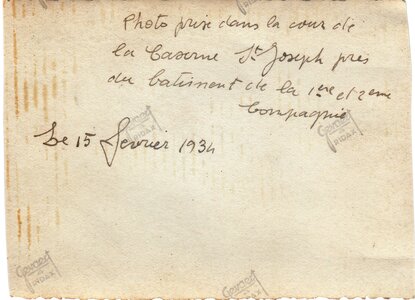 Photo prise dans la cour de
la Caserne St Joseph près
du batiment de la 1ere et 2eme
Compagnie
Le 15 fevrier 1934
Gevaert
RIDAX
Gevaert
RIDAX
Gevaert
RIDAX
Gevaert